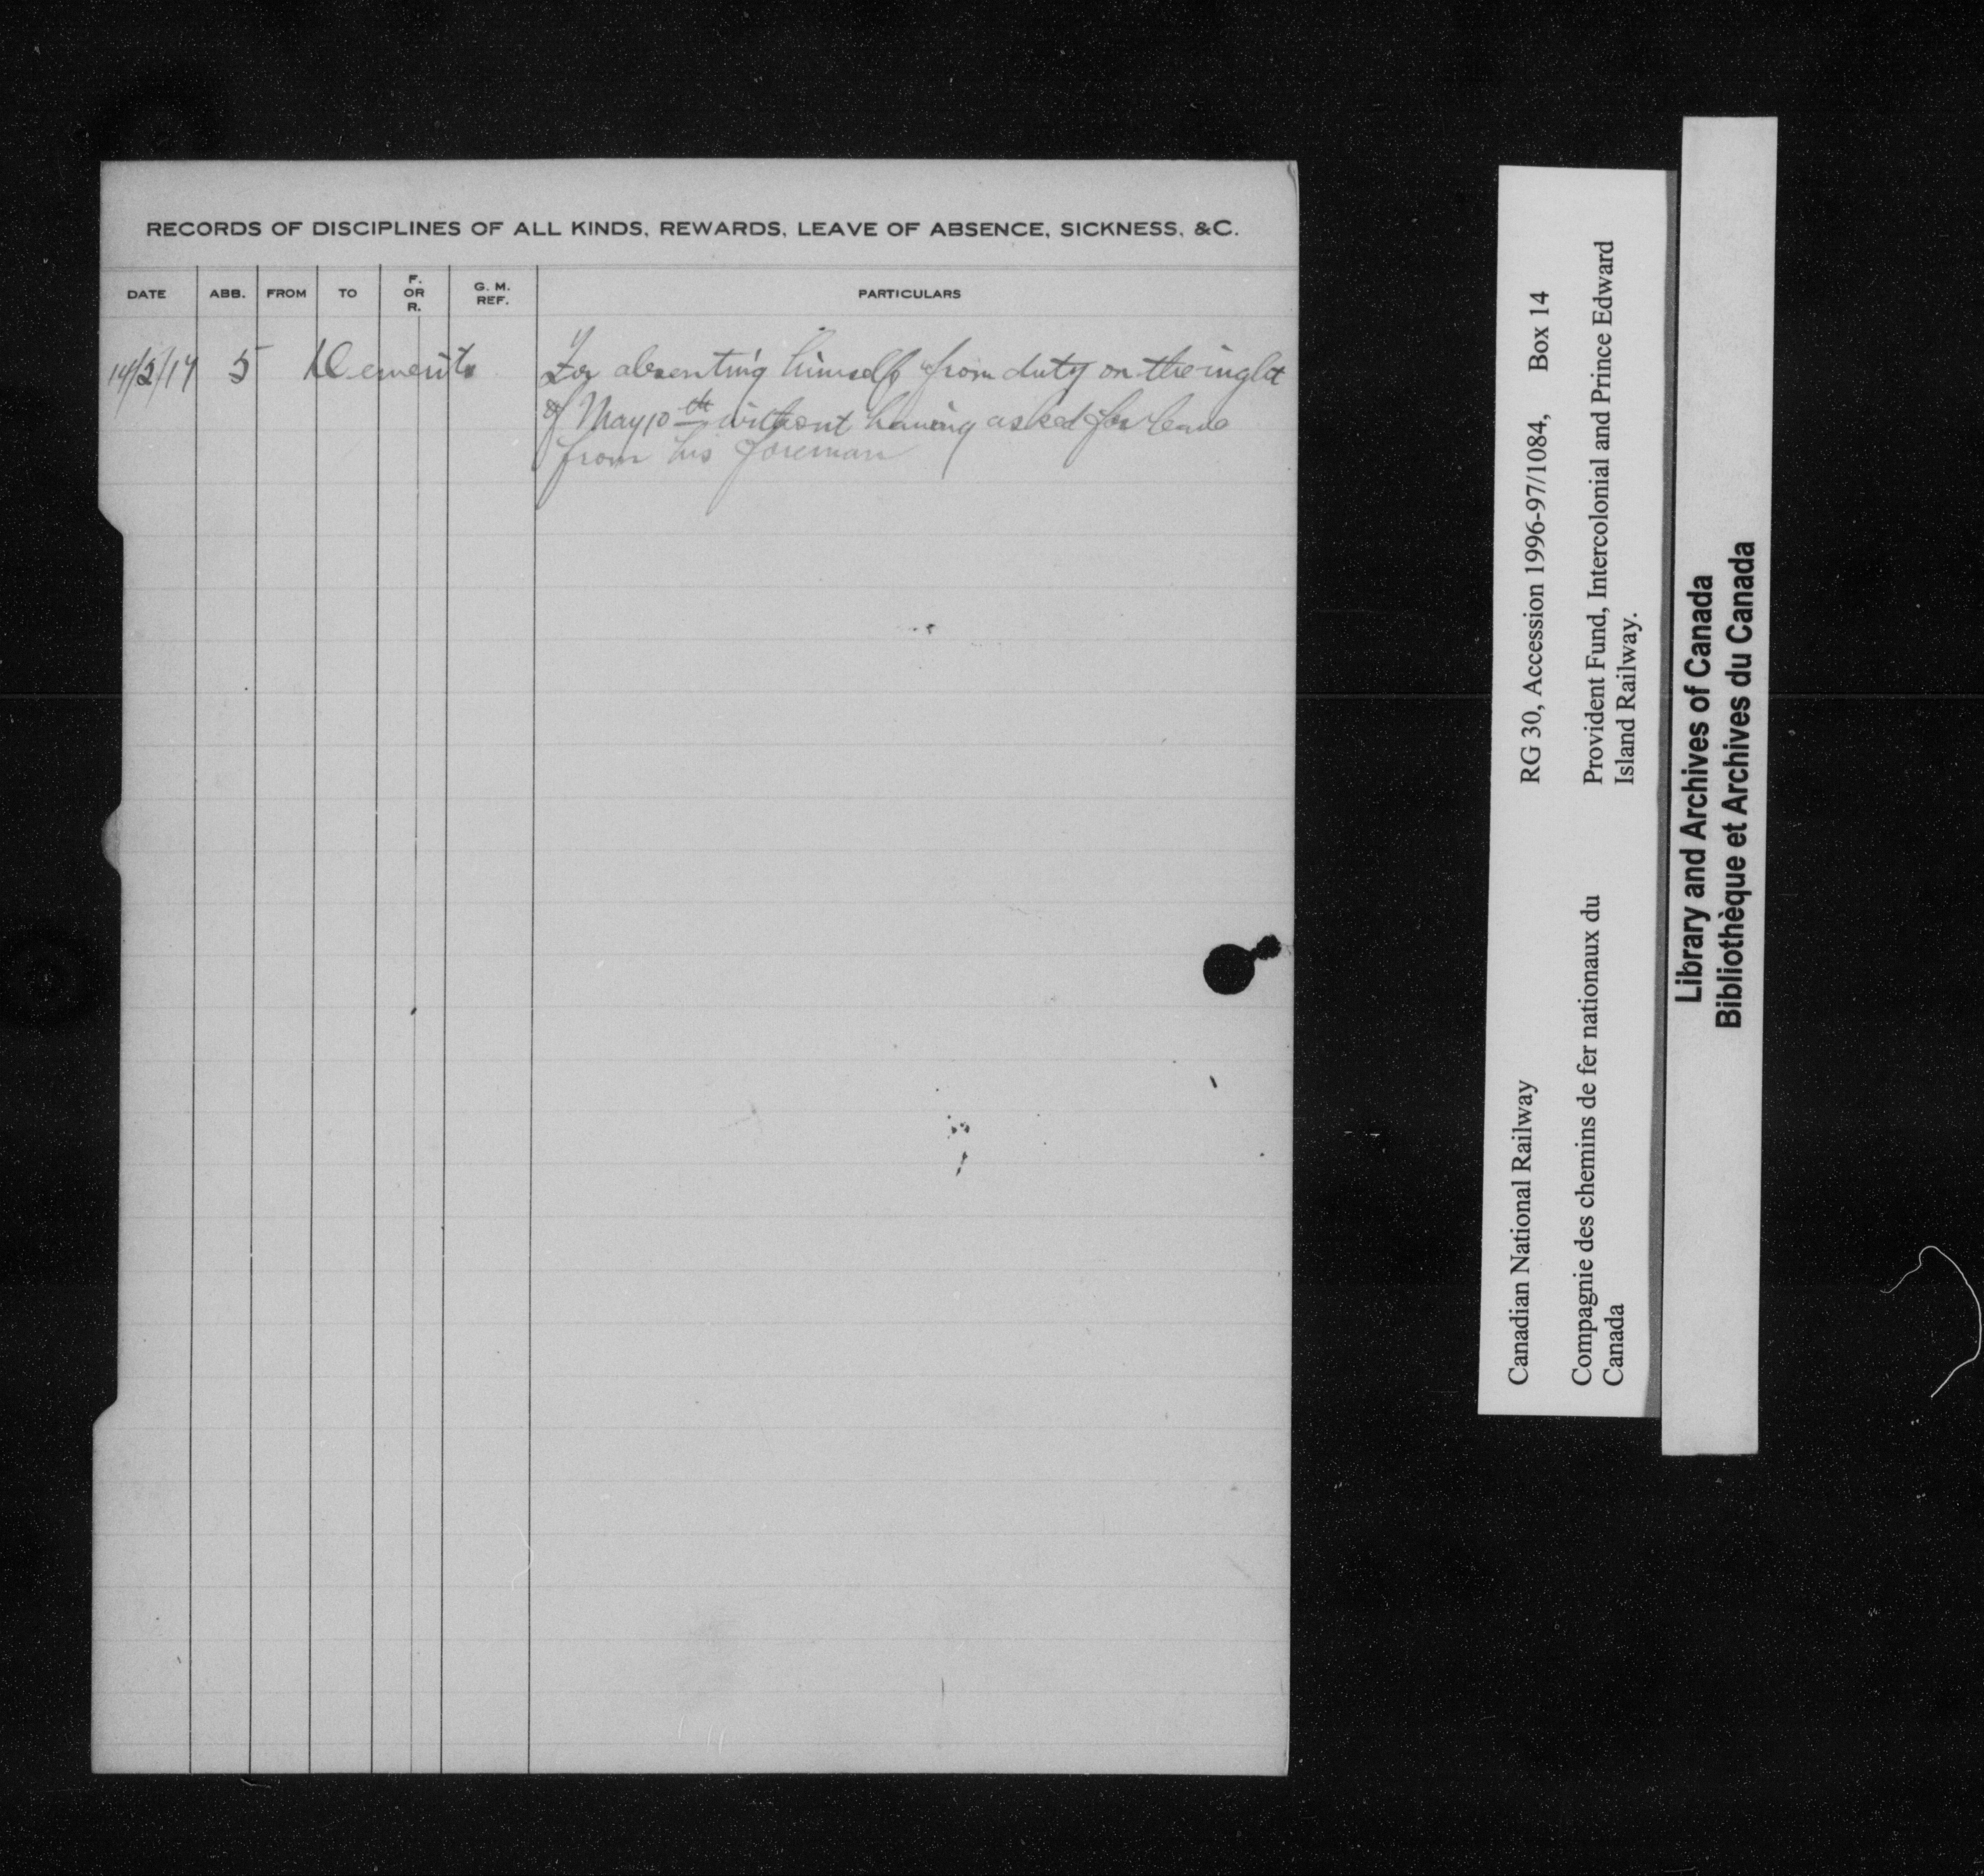 RECORDS OF DISCIPLINES OF ALL KINDS, REWARDS, LEAVE OF ABSENCE, SICKNESS, &C.
DATE ABB. FROM TO F. OR R. G. M. REF. PARTICULARS
14/5/17 5 Demerits For absenting himself from duty on the night
of May 10th without having asked for leave
from his foreman
Canadian National Railway RG 30, Accession 1996-97/1084, Box 14
Compagnie des chemins de fer nationaux du Provident Fund, Intercolonial and Prince Edward
Canada Island Railway.
Library and Archives of Canada
Bibliothèque et Archives du Canada